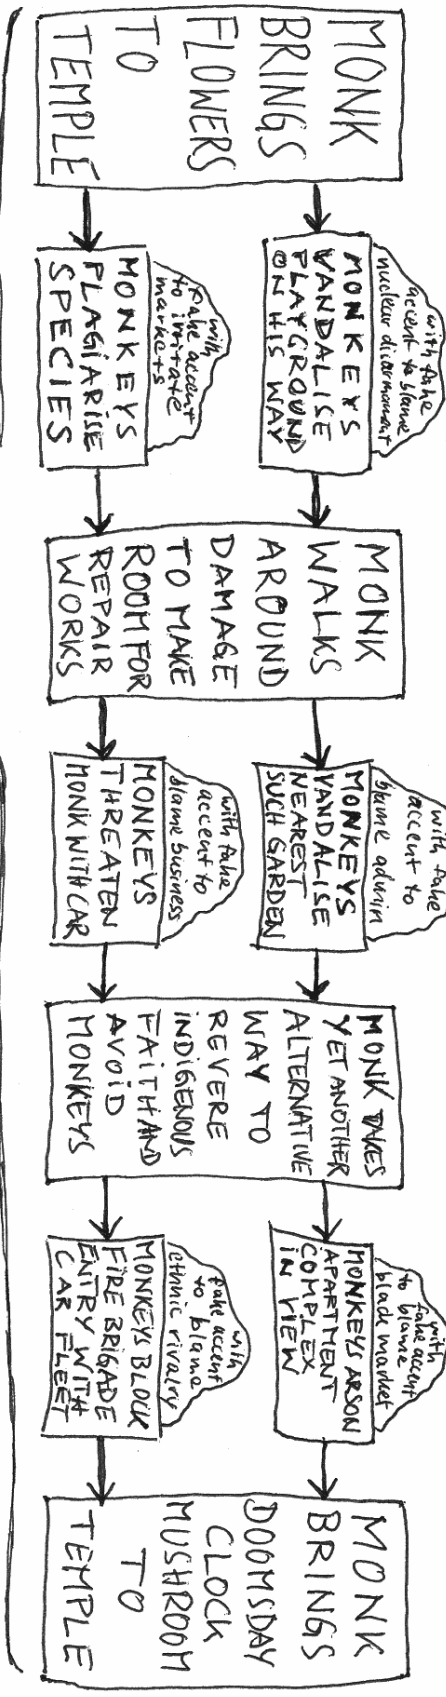 MONK
BRINGS
FLOWERS
TO
TEMPLE
with fake
accent to blame
nuclear disarmament
MONKEYS
VANDALISE
PLAYGROUND
ON HIS WAY
with
fake accent
to irritate
markets
MONKEYS
PLAGIARISE
SPECIES
MONK
WALKS
AROUND
DAMAGE
TO MAKE
ROOM FOR
REPAIR
WORKS
with fake
accent to
blame admin
MONKEYS
VANDALISE
NEAREST
SUCH GARDEN
with fake
accent to
blame business
MONKEYS
THREATEN
MONK WITH CAR
MONK TAKES
YET ANOTHER
ALTERNATIVE
WAY TO
REVERE
INDIGENOUS
FAITH AND
AVOID
MONKEYS
with
fake accent
to blame
black market
MONKEYS ARSON
APARTMENT
COMPLEX
IN VIEW
with
fake accent
to blame
ethnic rivalry
MONKEYS BLOCK
FIRE BRIGADE
ENTRY WITH
CAR FLEET
MONK
BRINGS
DOOMSDAY
CLOCK
MUSHROOM
TO
TEMPLE